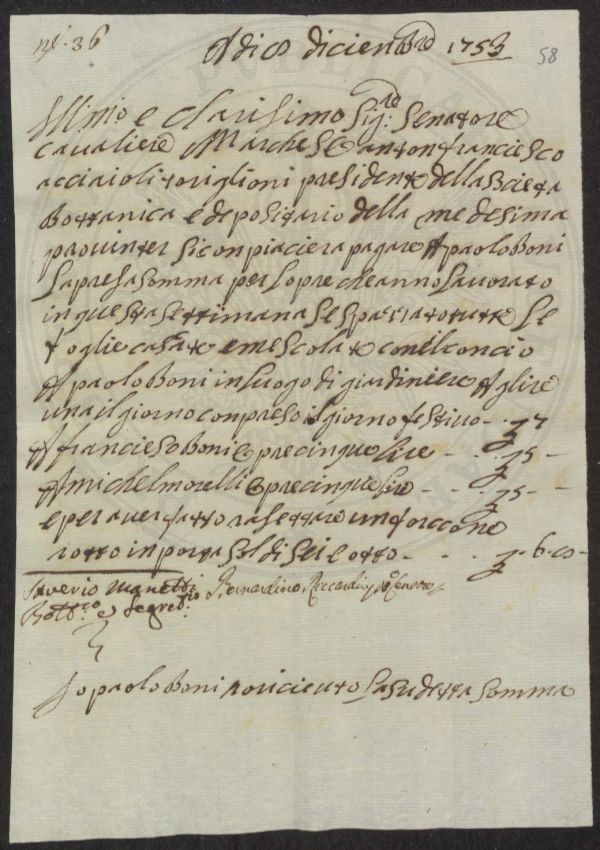 N.° 36
A di 8 diciembre 1753
58
Ill.mo e Clarisimo Sig.re Senatore
Cavaliere Marchese antonfranciesco
acciaioli toriglioni presidente della Societa
Bottanica e depositario della medesima
provinter si conpiaciera pagare A paolo Boni
la presa somma per lopre che anno lavorato
in questa settimana le spaziato tutte le
foglie cascate e mescolate con il concio
A paolo Boni in luogo di giardiniere A glire
una il giorno conpreso il giorno festivo - . 7
A Franciesco Boni opre cinque lire - - . 5 -
A michel morelli opre cinque lire - - - . 5 - -
e per aver fatto rasettare un forcone
rotto in porta soldi sei e otto - - . . - 6. 8 -
Saverio Manetti
Bott.co e Segret.rio
Bernardino Riccardi Pro
Io paolo Boni o ricieuto la sudetta somma